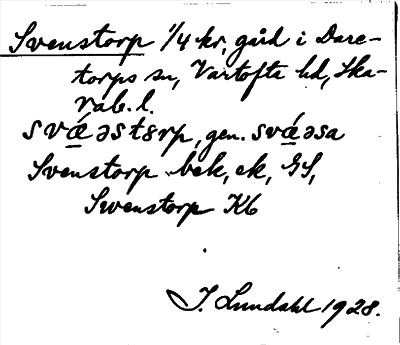 Svenstorp 1/4 kr, gård i Dare-
torps sn, Vartofta hd, Ska-
rab. l.
svǽ̱əstərp, gen. svǽ̱əsa
Svenstorp bek, ek, GS,
Swenstorp Kb
J. Lundahl 1928.